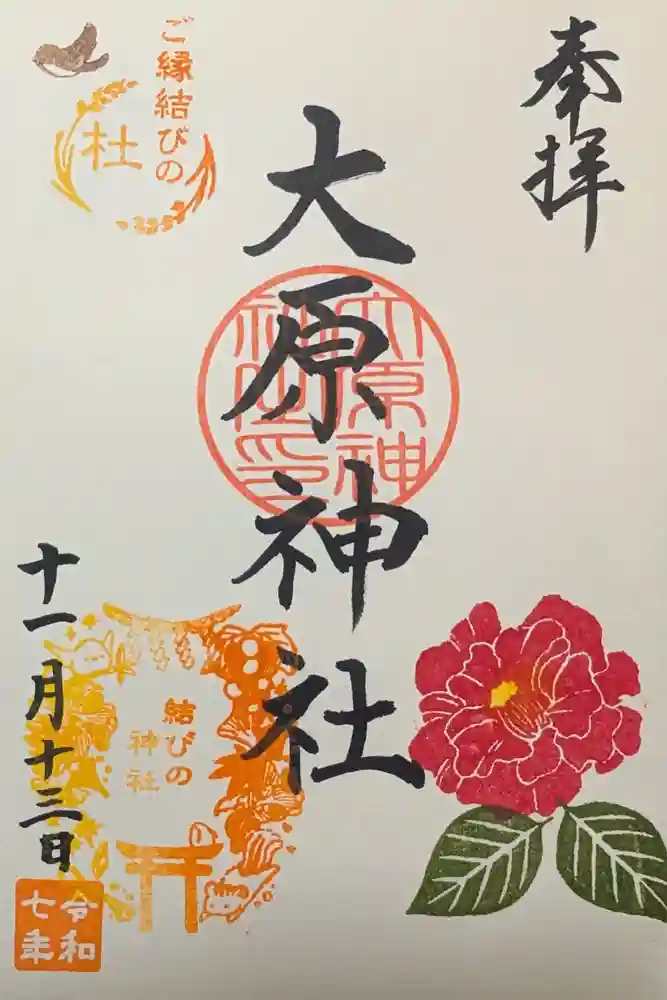 奉拝
大原神社
大原神社之印
ご縁結びの
杜
結びの
神社
十一月十三日
令和
七年